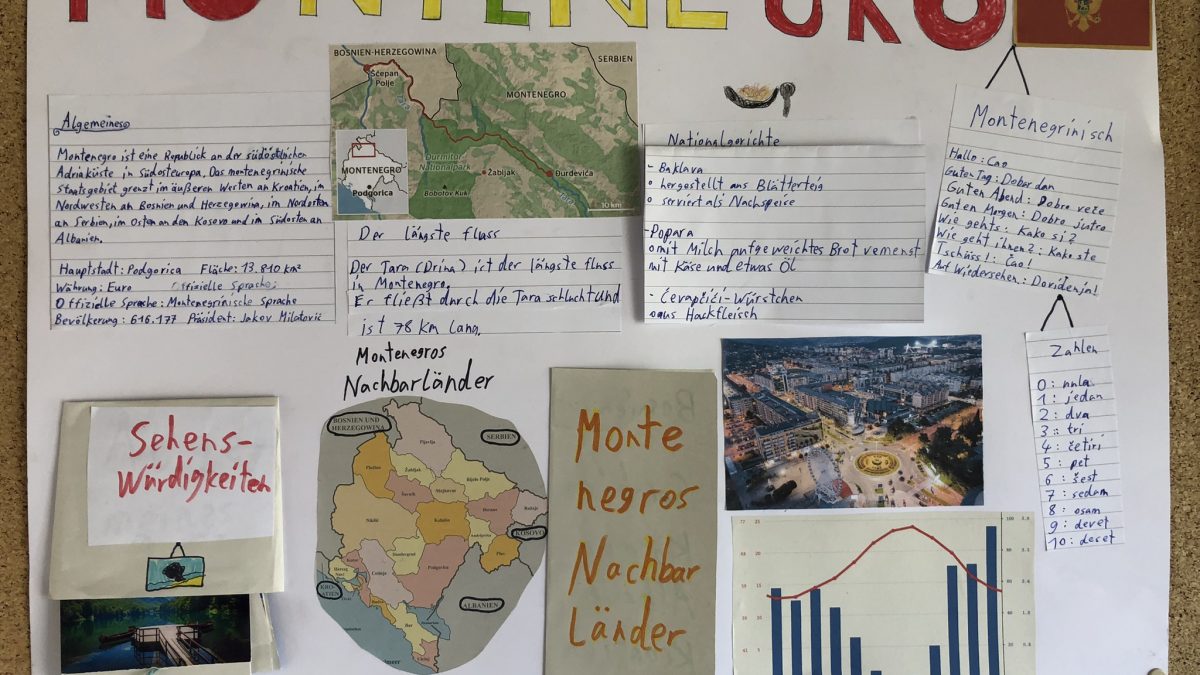 MONTENEGRO
Algemeines
Montenegro ist eine Republick an der südöstlichen
Adriaküste in Südosteuropa. Das montenegrinische
Staatsgebiet grenzt im äußeren Werten an Kroatien, im
Nordwesten an Bosnien und Herzegowina, im Nordosten
an Serbien, im Osten an den Kosovo und im Südosten an
Albanien.
Hauptstadt: Podgorica Fläche: 13.810 km²
Währung: Euro Offizielle Sprache:
Offizielle Sprache: Montenegrinische Sprache
Bevölkerung: 616.177 Präsident: Jakov Milatović
BOSNIEN-HERZEGOWINA
SERBIEN
Šćepan
Polje
Tara
MONTENEGRO
MONTENEGRO
Podgorica
Durmitor
Nationalpark
Bobotov Kuk
Žabljak
Đurđevića
10 km
Der längste fluss
Der Tara (Drina) ist der längste fluss
in Montenegro.
Er fließt durch die Tara schlucht und
ist 78 km lang.
Nationalgerichte
- Baklava
o hergestellt aus Blätterteig
o serviert als Nachspeise
- Popara
o mit Milch aufgeweichtes Brot vemenst
mit Käse und etwas Öl
- Čevapčići-Würstchen
o aus Hackfleisch
Montenegrinisch
Hallo: Ćao
Guten Tag: Dobar dan
Guten Abend: Dobro veče
Guten Morgen: Dobro jutro
Wie gehts: Kako si?
Wie geht ihnen?: Kako ste
Tschüss!: Ćao!
Auf Wiedersehen: Doviđenja!
Zahlen
0: nula
1: jedan
2: dva
3: tri
4: četiri
5: pet
6: šest
7: sedam
8: osam
9: devet
10: deset
Sehens-
Würdigkeiten
Montenegros
Nachbarländer
BOSNIEN UND
HERZEGOWINA
SERBIEN
KOSOVO
KRO-
ATIEN
ALBANIEN
Pljevlja
Plužine
Žabljak
Šavnik
Mojkovac
Bijelo Polje
Nikšić
Kolašin
Berane
Rožaje
Andrijevica
Plav
Danilovgrad
Podgorica
Cetinje
Kotor
Herceg
Novi
Tivat
Budva
Bar
Ulcinj
Monte
negros
Nachbar
länder